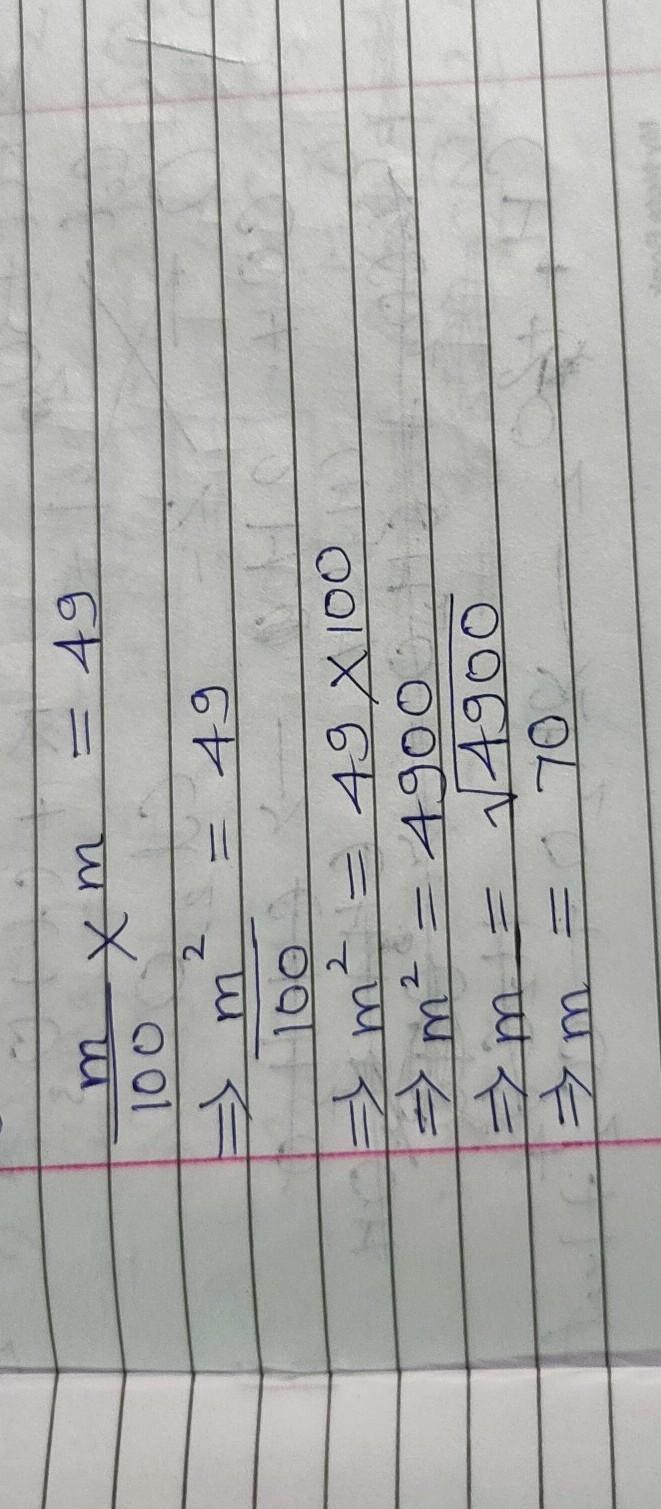 m/100 × m = 49
⇒ m²/100 = 49
⇒ m² = 49 × 100
⇒ m² = 4900
⇒ m = √4900
⇒ m = 70